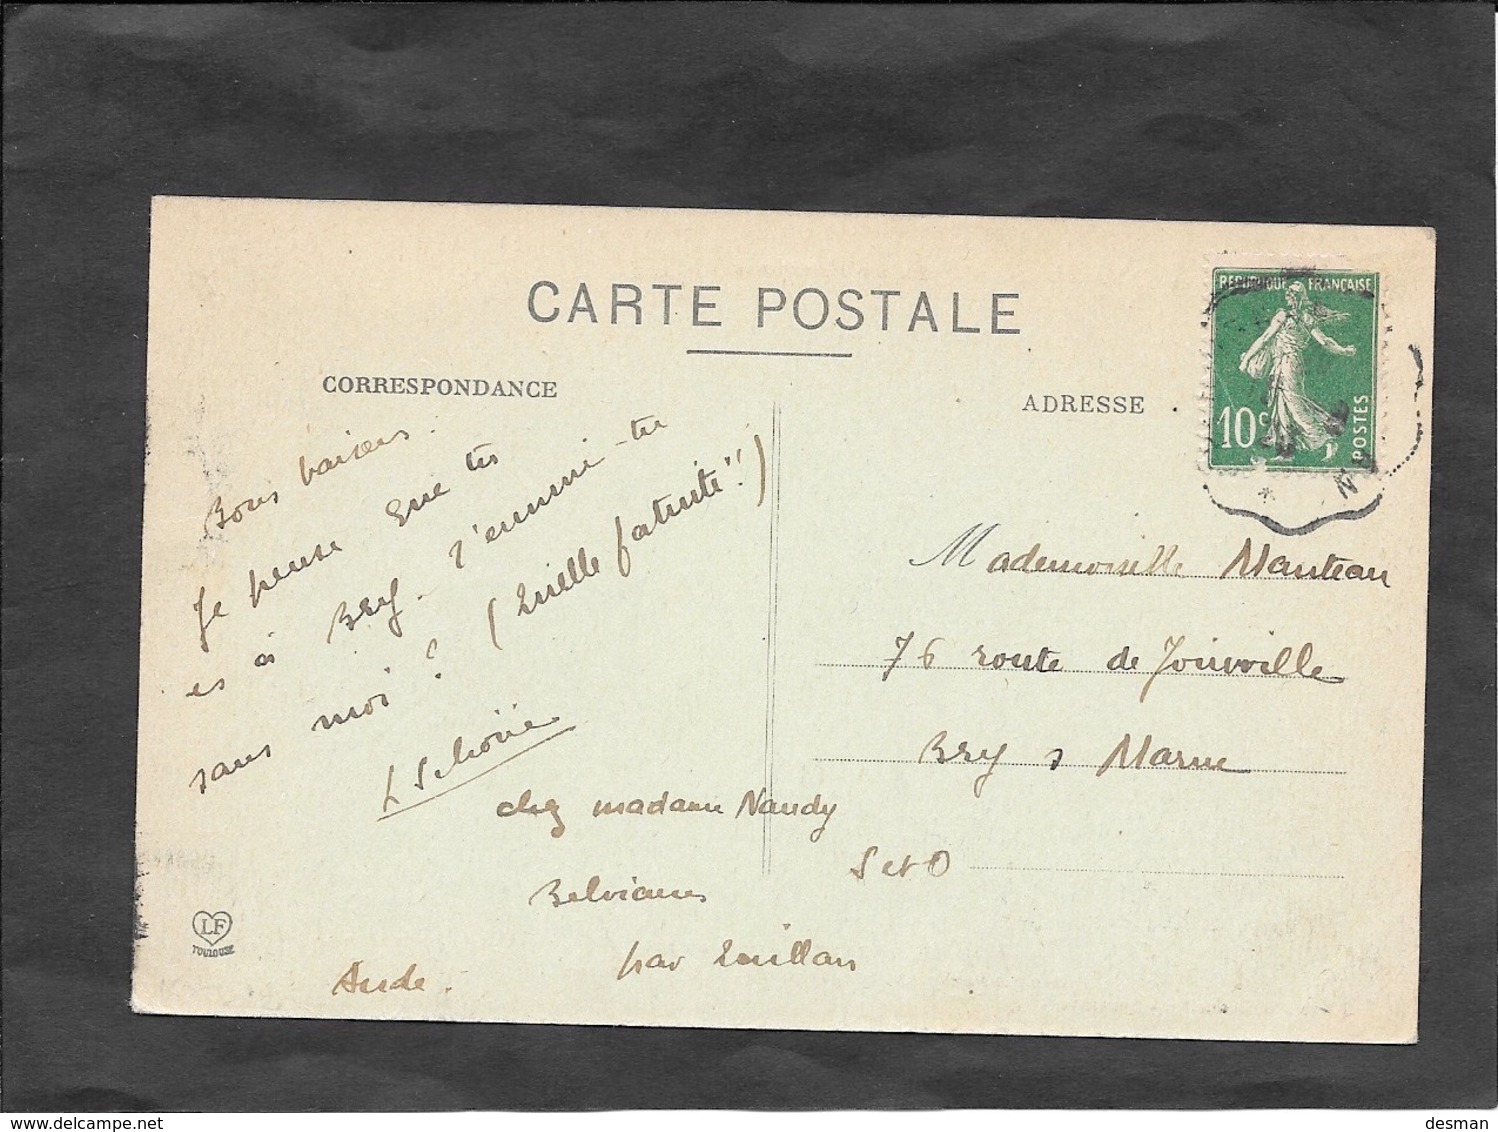 CARTE POSTALE
CORRESPONDANCE
Bons baisers.
Je pense que tu
es à Bry. T'ennuie-tu
sans moi? (Quelle fatuité!!)
chez madame Naudy
Belvianes
par Quillan
Aude.
LF
TOULOUSE
ADRESSE
REPUBLIQUE FRANÇAISE
10c
POSTES
Mademoiselle Manteau
76 route de Joinville
Bry s Marne
S et O
desman